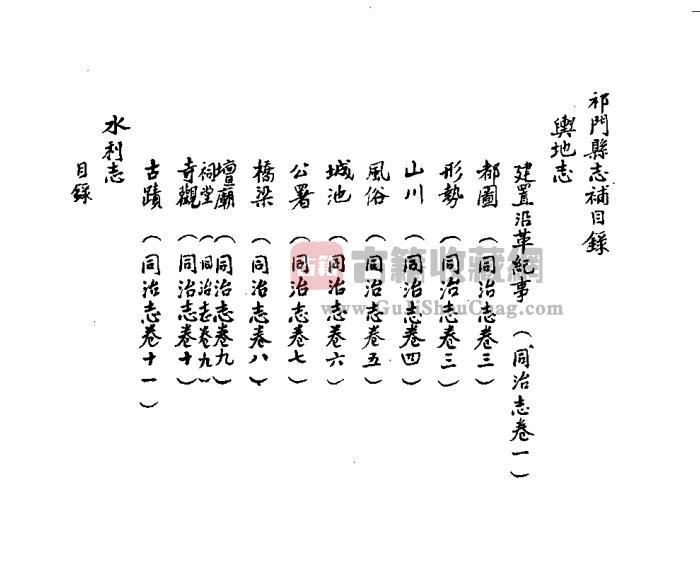 祁門縣志補目錄
輿地志
建置沿革紀事（同治志卷一）
都圖（同治志卷三）
形勢（同治志卷三）
山川（同治志卷四）
風俗（同治志卷五）
城池（同治志卷六）
公署（同治志卷七）
橋梁（同治志卷八）
壇廟（同治志卷九）
祠堂（同治志卷九）
寺觀（同治志卷十）
古蹟（同治志卷十一）
水利志
目錄
古籍
古籍收藏網
www.GuJiShouCang.com